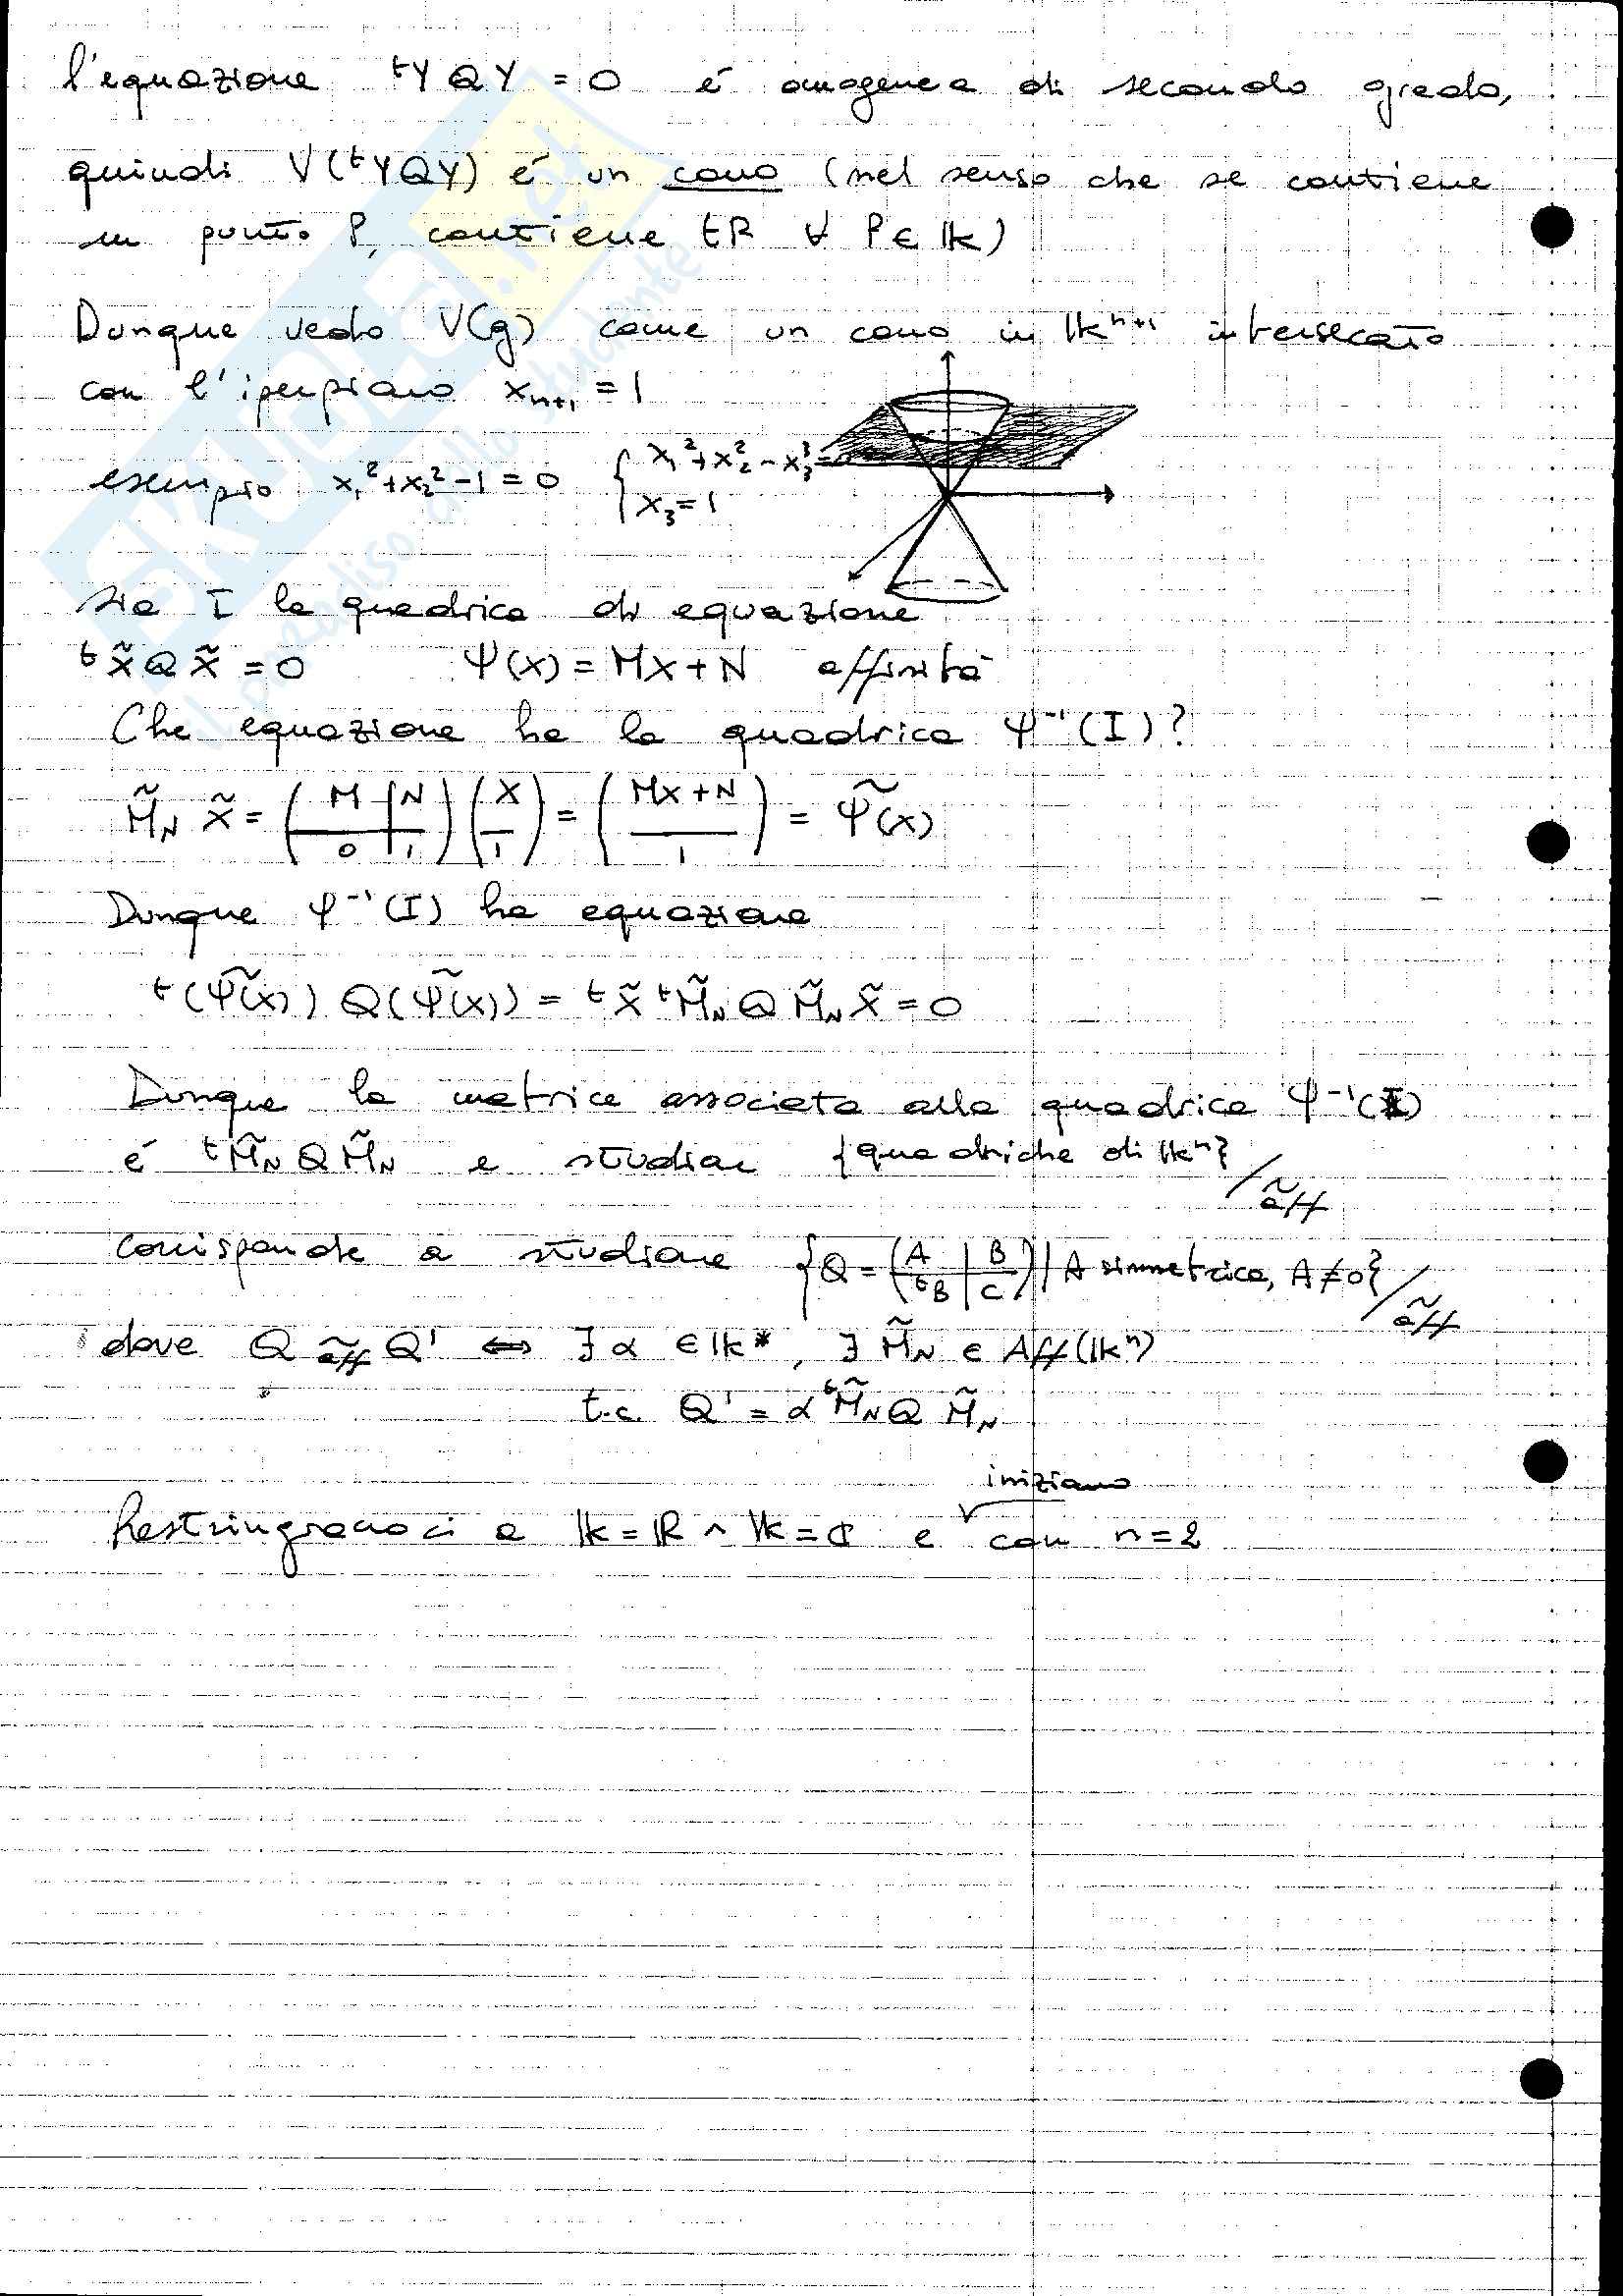 l'equazione ᵗY Q Y = 0 é omogenea di secondo grado,
quindi V(ᵗYQY) é un cono (nel senso che se contiene
un punto P, contiene tP ∀ P ∈ 𝕜)
Dunque vedo V(g) come un cono in 𝕜ⁿ⁺¹ intersecato
con l'iperpiano xₙ₊₁ = 1
esempio x₁² + x₂² - 1 = 0 { x₁² + x₂² - x₃³ = 0
x₃ = 1
sia I la quadrica di equazione
ᵗX̃ Q X̃ = 0 Ψ(X) = MX + N affinità
Che equazione ha la quadrica Ψ⁻¹(I)?
M̃_N X̃ = (M | N / 0 | 1) (X / 1) = (MX + N / 1) = Ψ̃(x)
Dunque Ψ⁻¹(I) ha equazione
ᵗ(Ψ̃(x)) Q (Ψ̃(x)) = ᵗX̃ ᵗM̃_N Q M̃_N X̃ = 0
Dunque la matrice associata alla quadrica Ψ⁻¹(I)
é ᵗM̃_N Q M̃_N e studiare {quadriche di 𝕜ⁿ} / ãff
corrisponde a studiare {Q = (A | B / ᵗB | C) | A simmetrica, A ≠ 0} / ãff
dove Q ãff Q' ⇔ ∃ α ∈ 𝕜*, ∃ M̃_N ∈ Aff(𝕜ⁿ)
t.c. Q' = α ᵗM̃_N Q M̃_N
iniziamo
Restringiamoci a 𝕜 = ℝ ∧ 𝕜 = ℂ e con n = 2